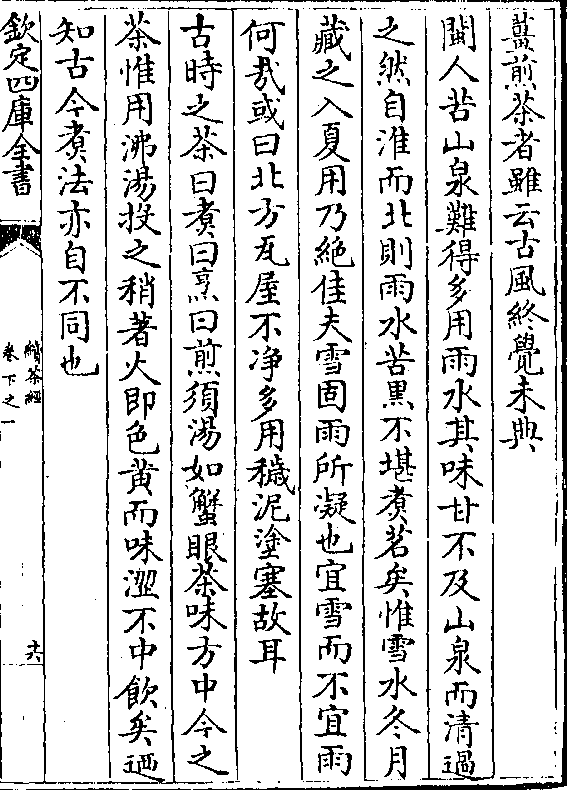 薑煎茶者雖云古風終覺未典
閩人苦山泉難得多用雨水其味甘不及山泉而清過
之然自淮而北則雨水苦黑不堪煮茗矣惟雪水冬月
藏之入夏用乃絶佳夫雪固雨所凝也宜雪而不宜雨
何哉或曰北方瓦屋不净多用穢泥塗塞故耳
古時之茶曰煮曰烹曰煎須湯如蟹眼茶味方中今之
茶惟用沸湯投之稍著火即色黄而味澀不中飲矣廼
知古今煮法亦自不同也
欽定四庫全書
續茶經
卷下之一
六